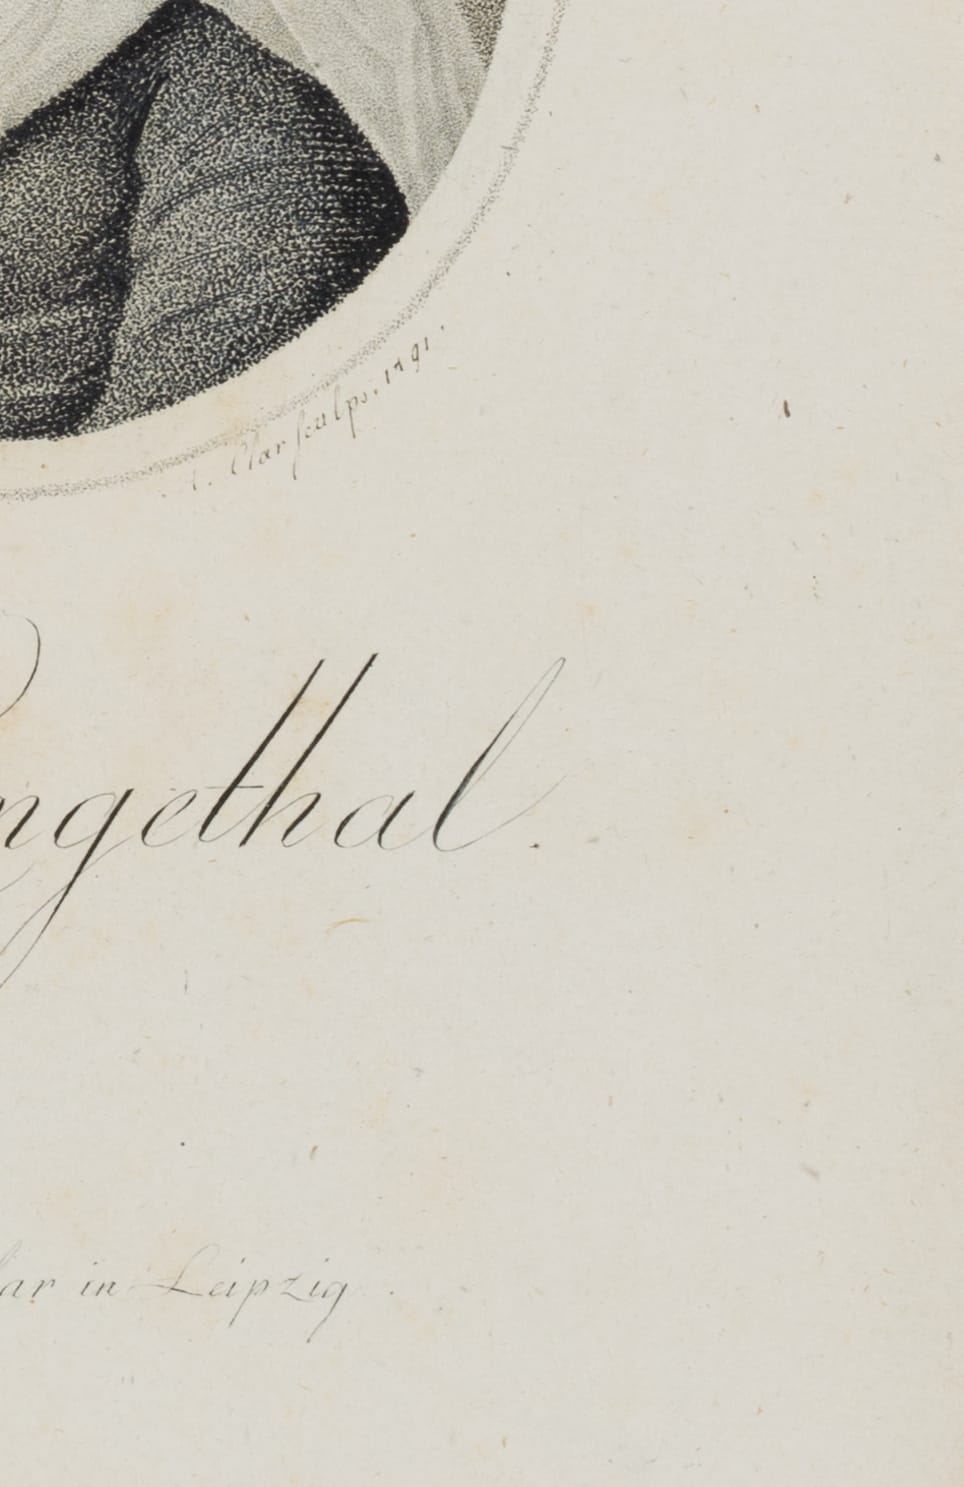 Clar sculps. 1791.
ngethal.
lar in Leipzig